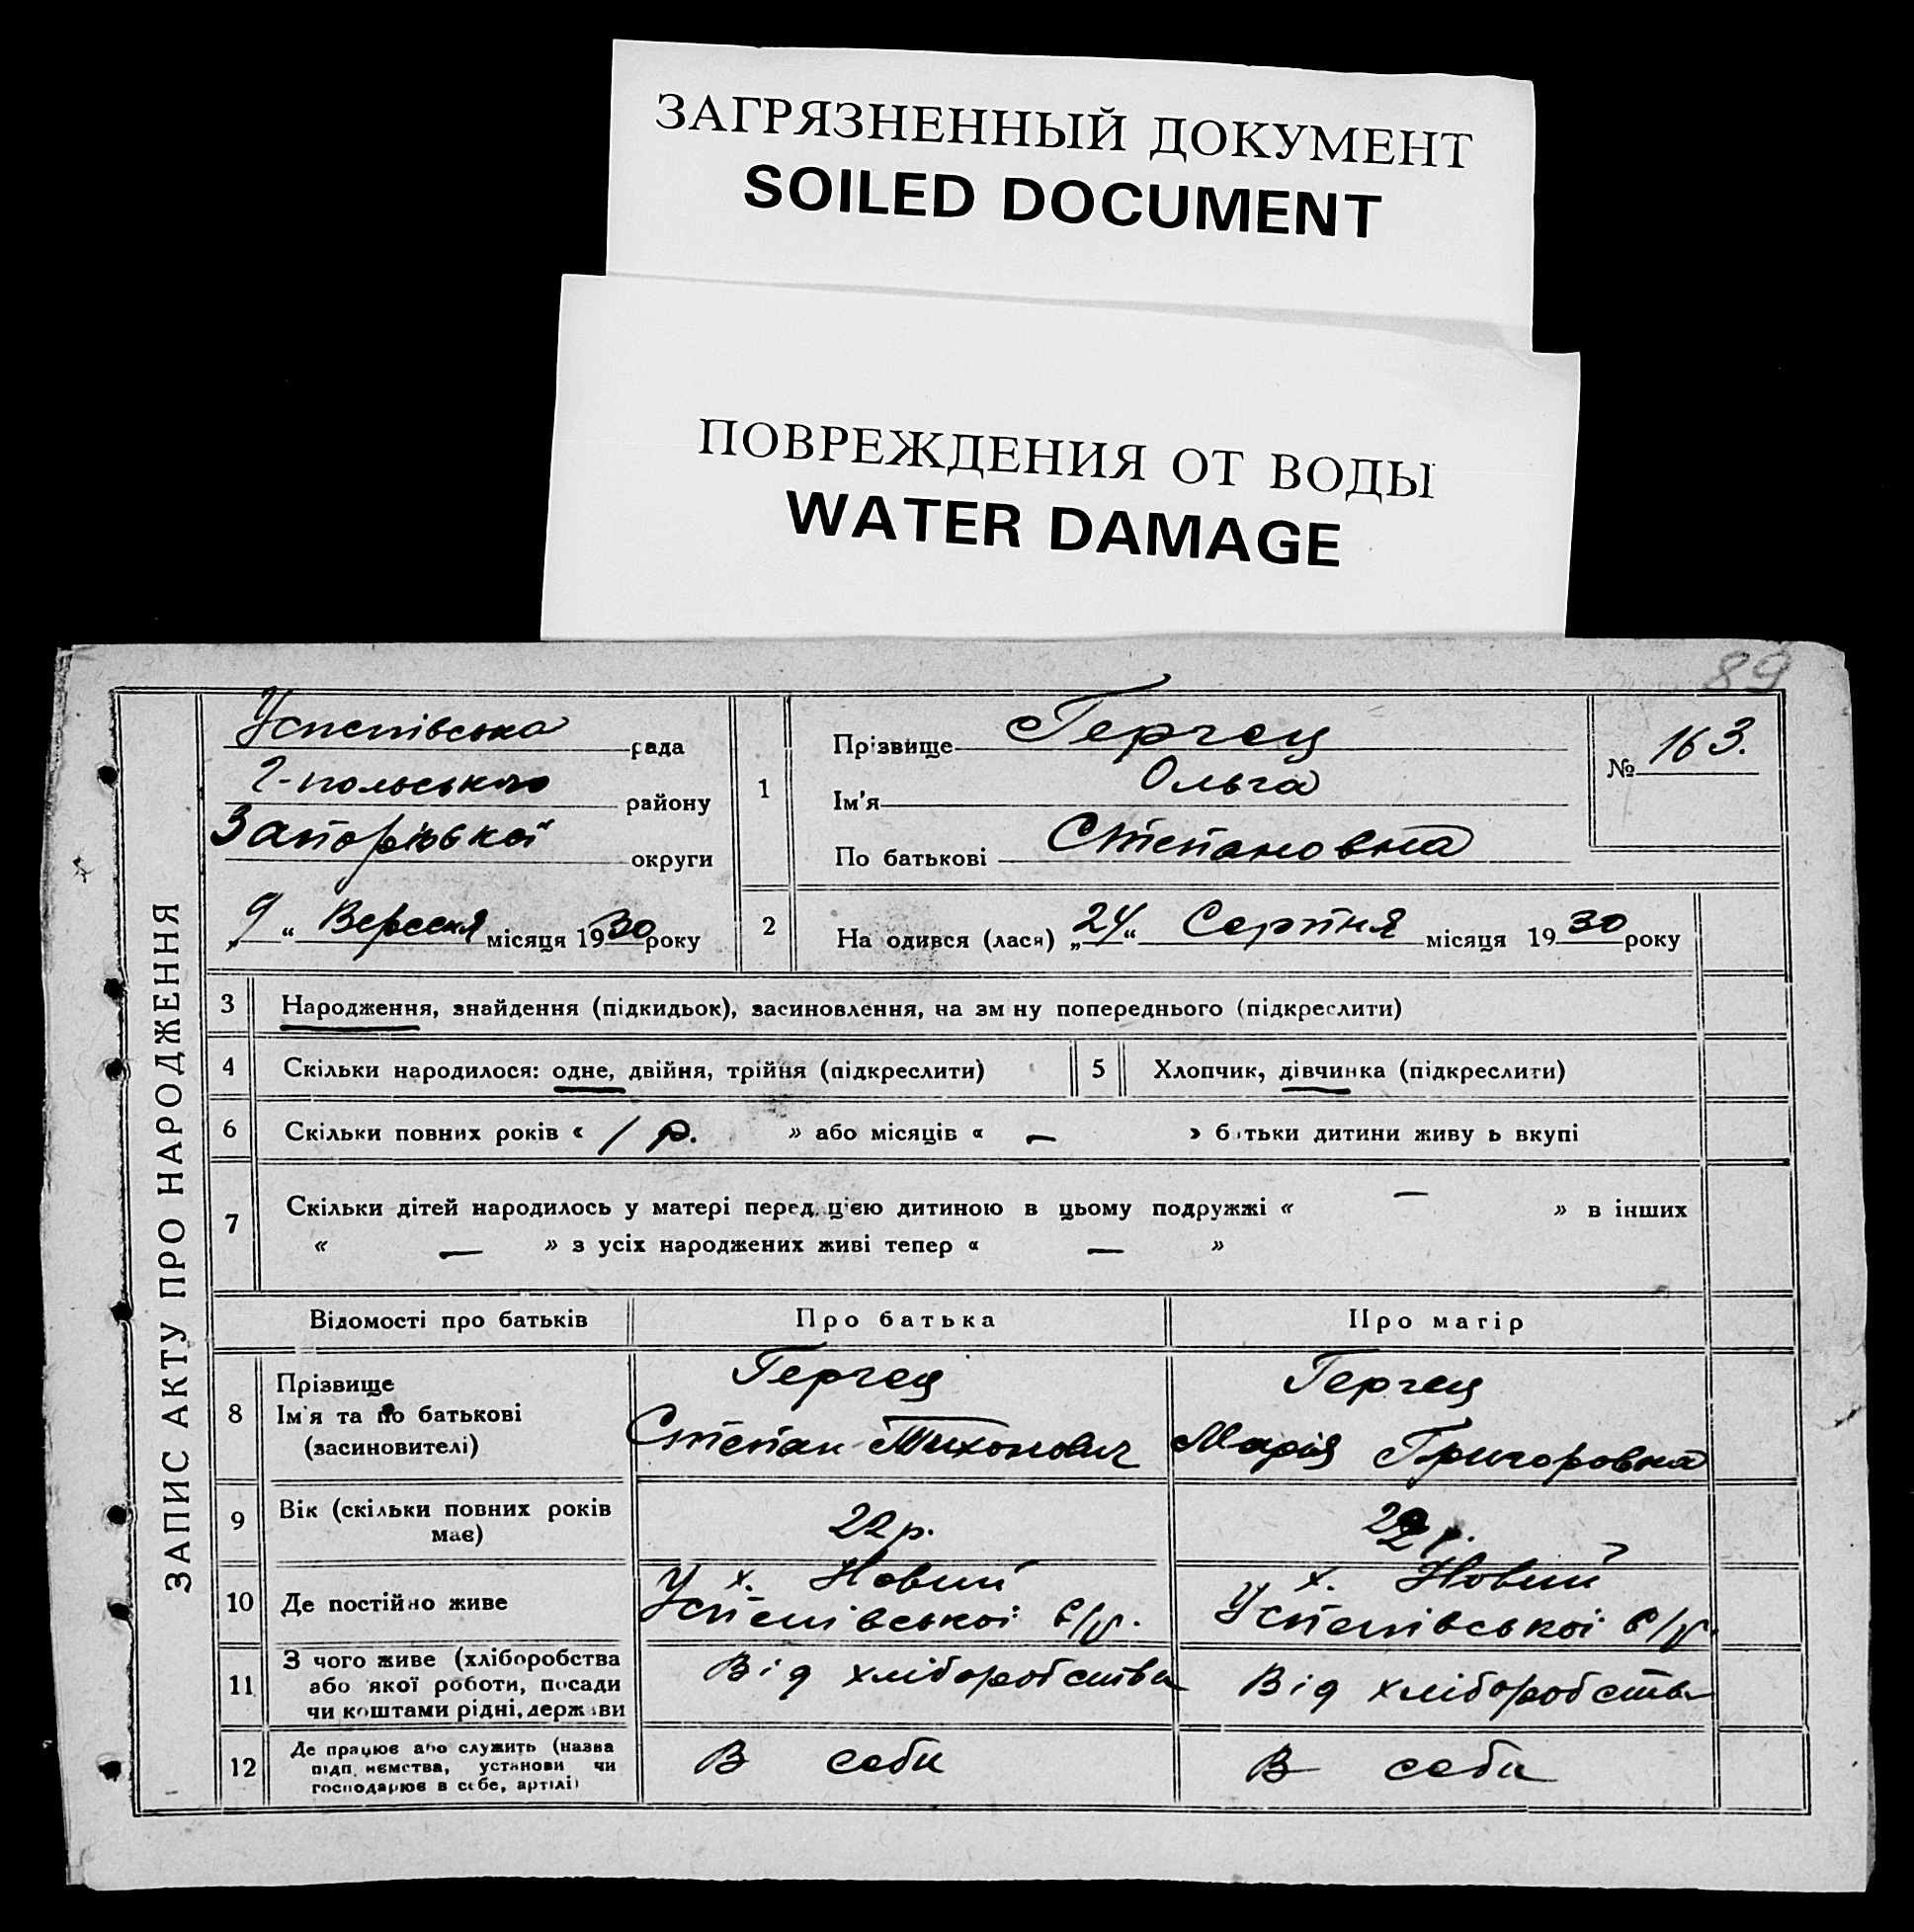 ЗАГРЯЗНЕННЫЙ ДОКУМЕНТ
SOILED DOCUMENT
ПОВРЕЖДЕНИЯ ОТ ВОДЫ
WATER DAMAGE
89
ЗАПИС АКТУ ПРО НАРОДЖЕННЯ
Успенівська рада
Г-польського району
Запорізької округи
„9“ Вересня місяця 1930 року
1
Прізвище Герчец
Ім'я Ольга
По батькові Степановна
№ 163.
2 На одився (лася) „24“ Серпня місяця 1930 року
3 Народження, знайдення (підкидьок), засиновлення, на зм ну попереднього (підкреслити)
4 Скільки народилося: одне, двійня, трійня (підкреслити) 5 Хлопчик, дівчинка (підкреслити)
6 Скільки повних років « 1 р. » або місяців « — » б тьки дитини живу ь вкупі
7 Скільки дітей народилось у матері перед цією дитиною в цьому подружжі « — » в інших
« — » з усіх народжених живі тепер « — »
Відомості про батьків Про батька Про матір
8 Прізвище Герчец Герчец
Ім'я та по батькові Степан Тихонович Марія Григоровна
(засиновителі)
9 Вік (скільки повних років має) 22 р. 22 р.
10 Де постійно живе х. Новий х. Новий
Успенівської с/р. Успенівської с/р.
11 З чого живе (хліборобства Від хліборобства Від хліборобства
або якої роботи, посади
чи коштами рідні, держави
12 Де працює або служить (назва В себи В себи
підп иємства, установи чи
господарює в себе, артілі)